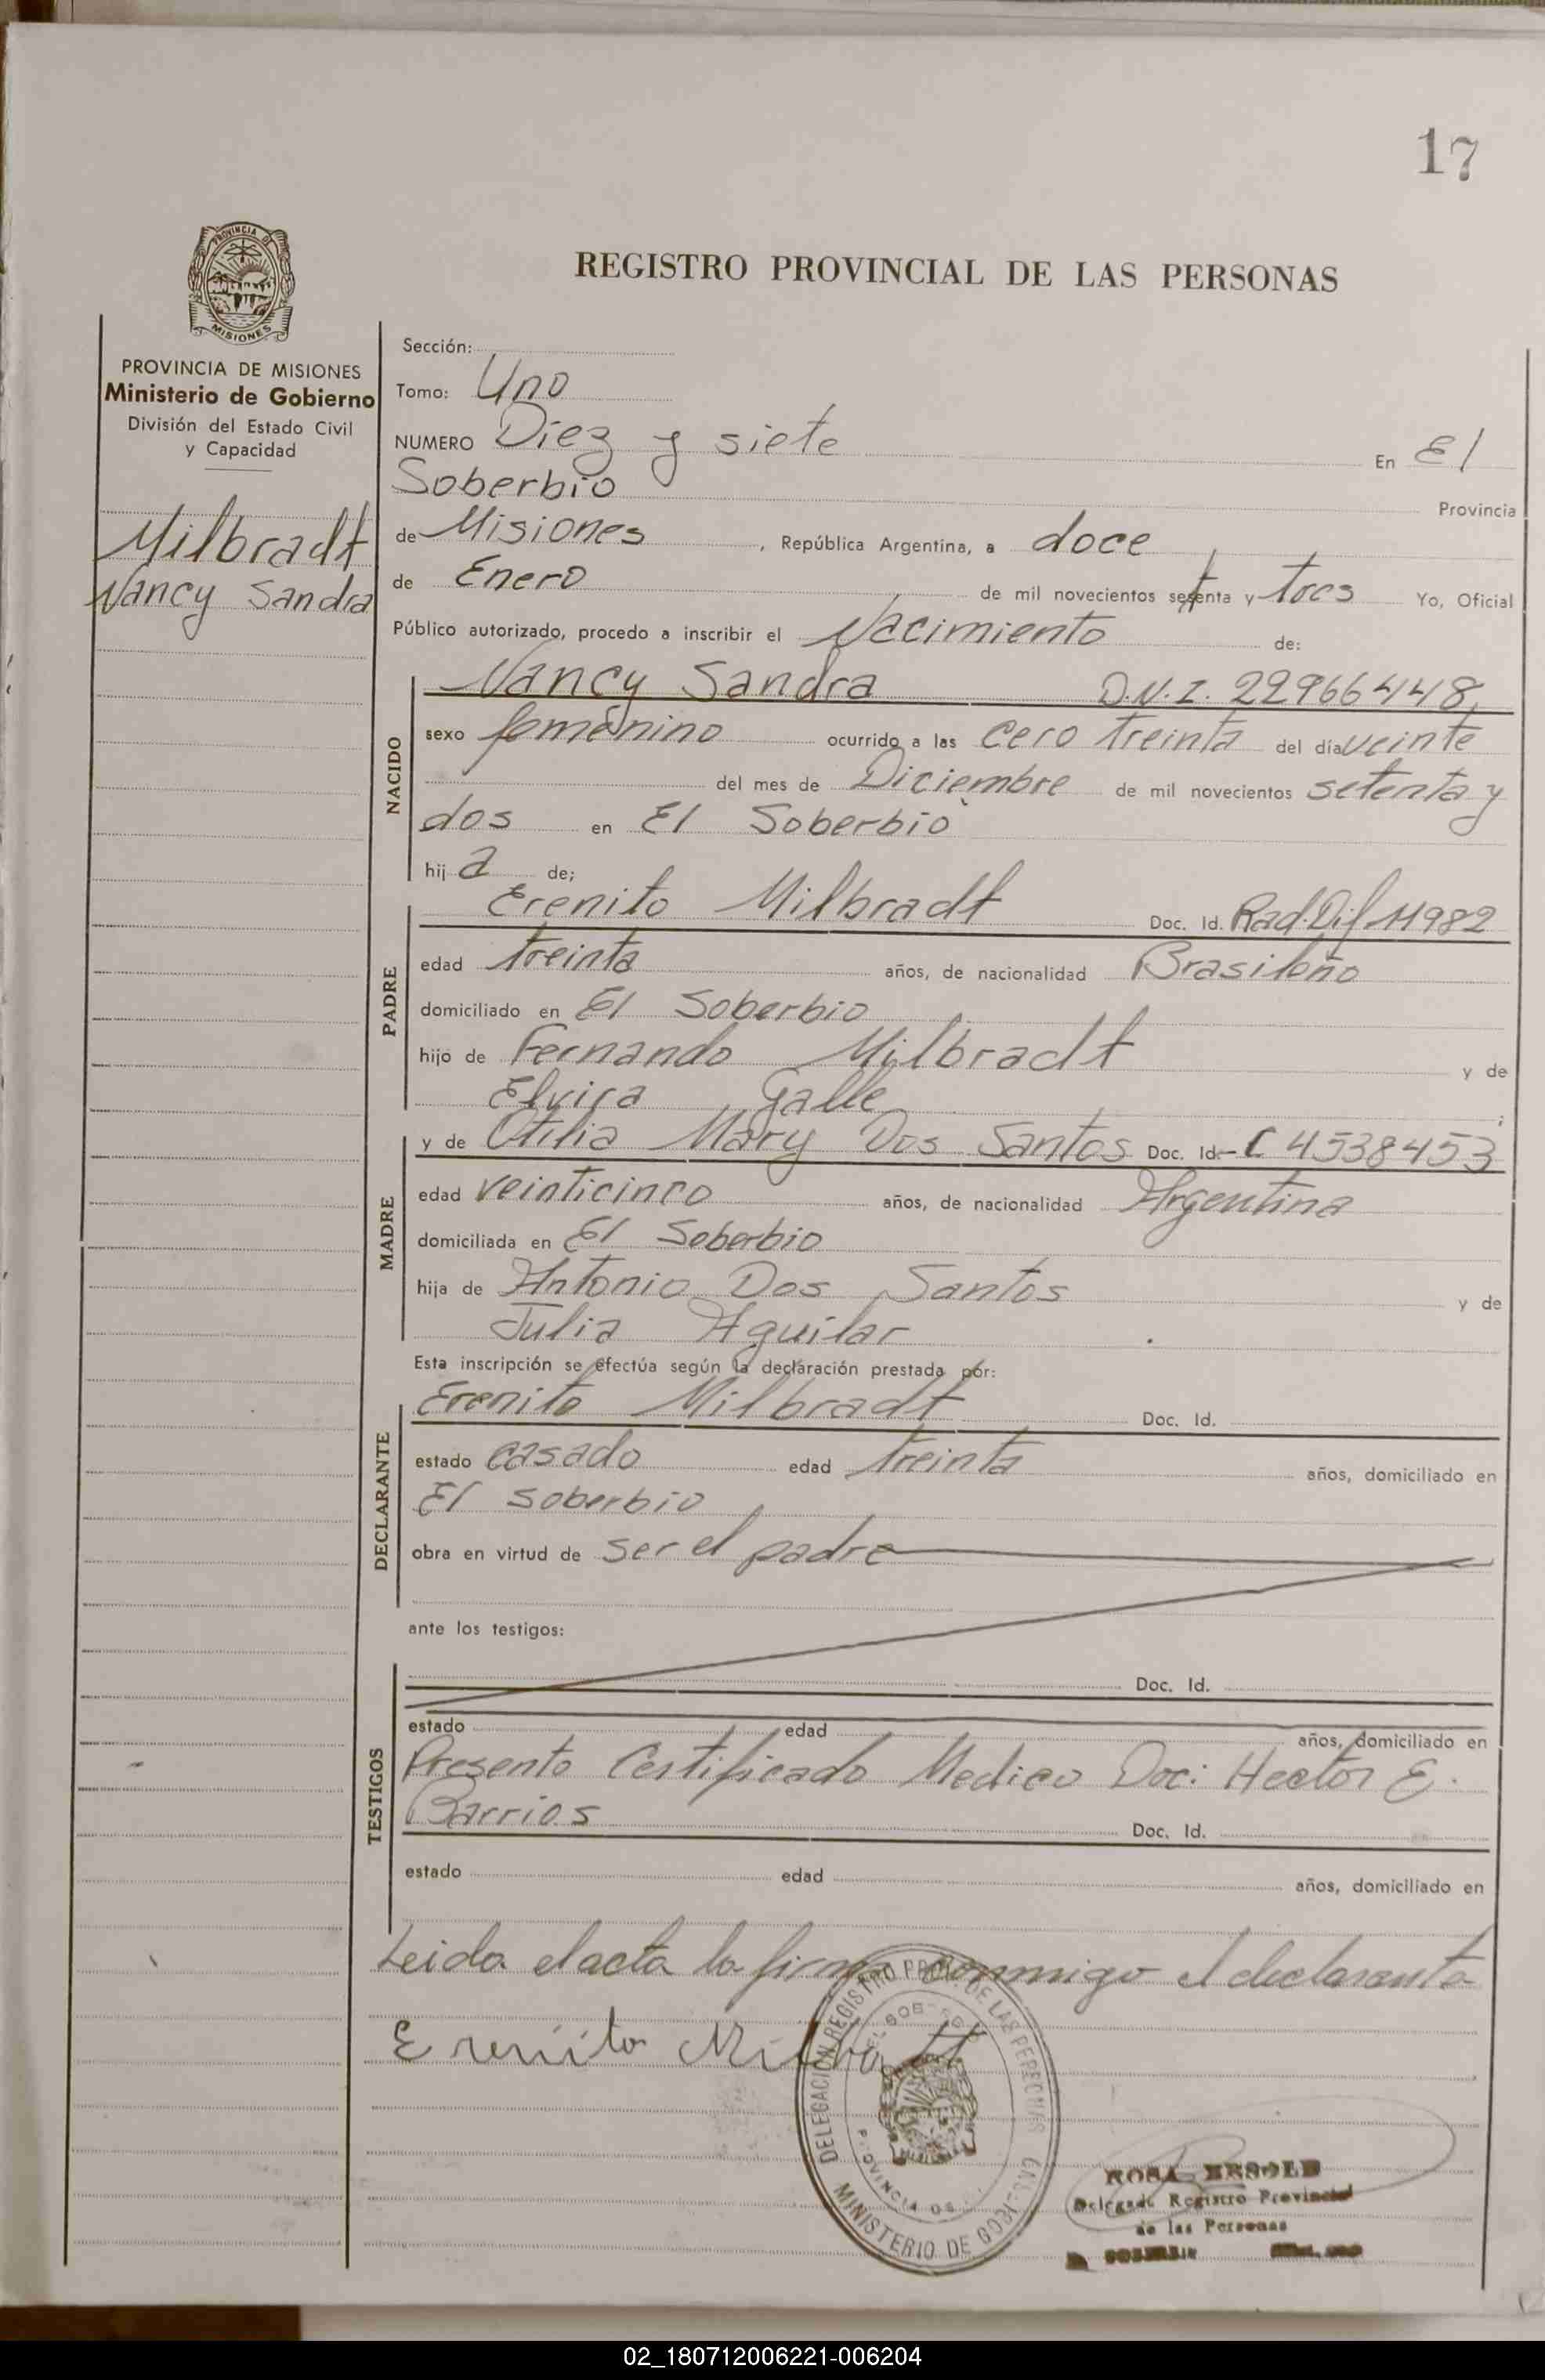 17
PROVINCIA DE
MISIONES
REGISTRO PROVINCIAL DE LAS PERSONAS
PROVINCIA DE MISIONES
Ministerio de Gobierno
División del Estado Civil
y Capacidad
Milbradt
Nancy Sandra
Sección:
Tomo: Uno
NUMERO Diez y siete En El
Soberbio Provincia
de Misiones, República Argentina, a doce
de Enero de mil novecientos setenta y tres Yo, Oficial
Público autorizado, procedo a inscribir el Nacimiento de:
NACIDO
Nancy Sandra D.N.I. 22966448
sexo femenino ocurrido a las cero treinta del día veinte
del mes de Diciembre de mil novecientos setenta y
dos en El Soberbio
hija de;
PADRE
Erenito Milbradt Doc. Id. Rad.Dif 11982
edad treinta años, de nacionalidad Brasileño
domiciliado en El Soberbio
hijo de Fernando Milbradt y de
Elvira Galle;
MADRE
y de Otilia Mary Dos Santos Doc. Id. C 4538453
edad veinticinco años, de nacionalidad Argentina
domiciliada en El Soberbio
hija de Antonio Dos Santos y de
Julia Aguilar.
Esta inscripción se efectúa según la declaración prestada por:
DECLARANTE
Erenito Milbradt Doc. Id.
estado casado edad treinta años, domiciliado en
El soberbio
obra en virtud de ser el padre
ante los testigos:
TESTIGOS
Doc. Id.
estado edad años, domiciliado en
Presento Certificado Medico Doc: Hector E.
Barrios Doc. Id.
estado edad años, domiciliado en
Leida el acta la firma conmigo el declarante
Erenito Milbradt
DELEGACION REGISTRO PROV. DE LAS PERSONAS
MINISTERIO DE GOB
PROVINCIA DE
ROSA
Delegada Registro Provincial
de las Personas
02_180712006221-006204